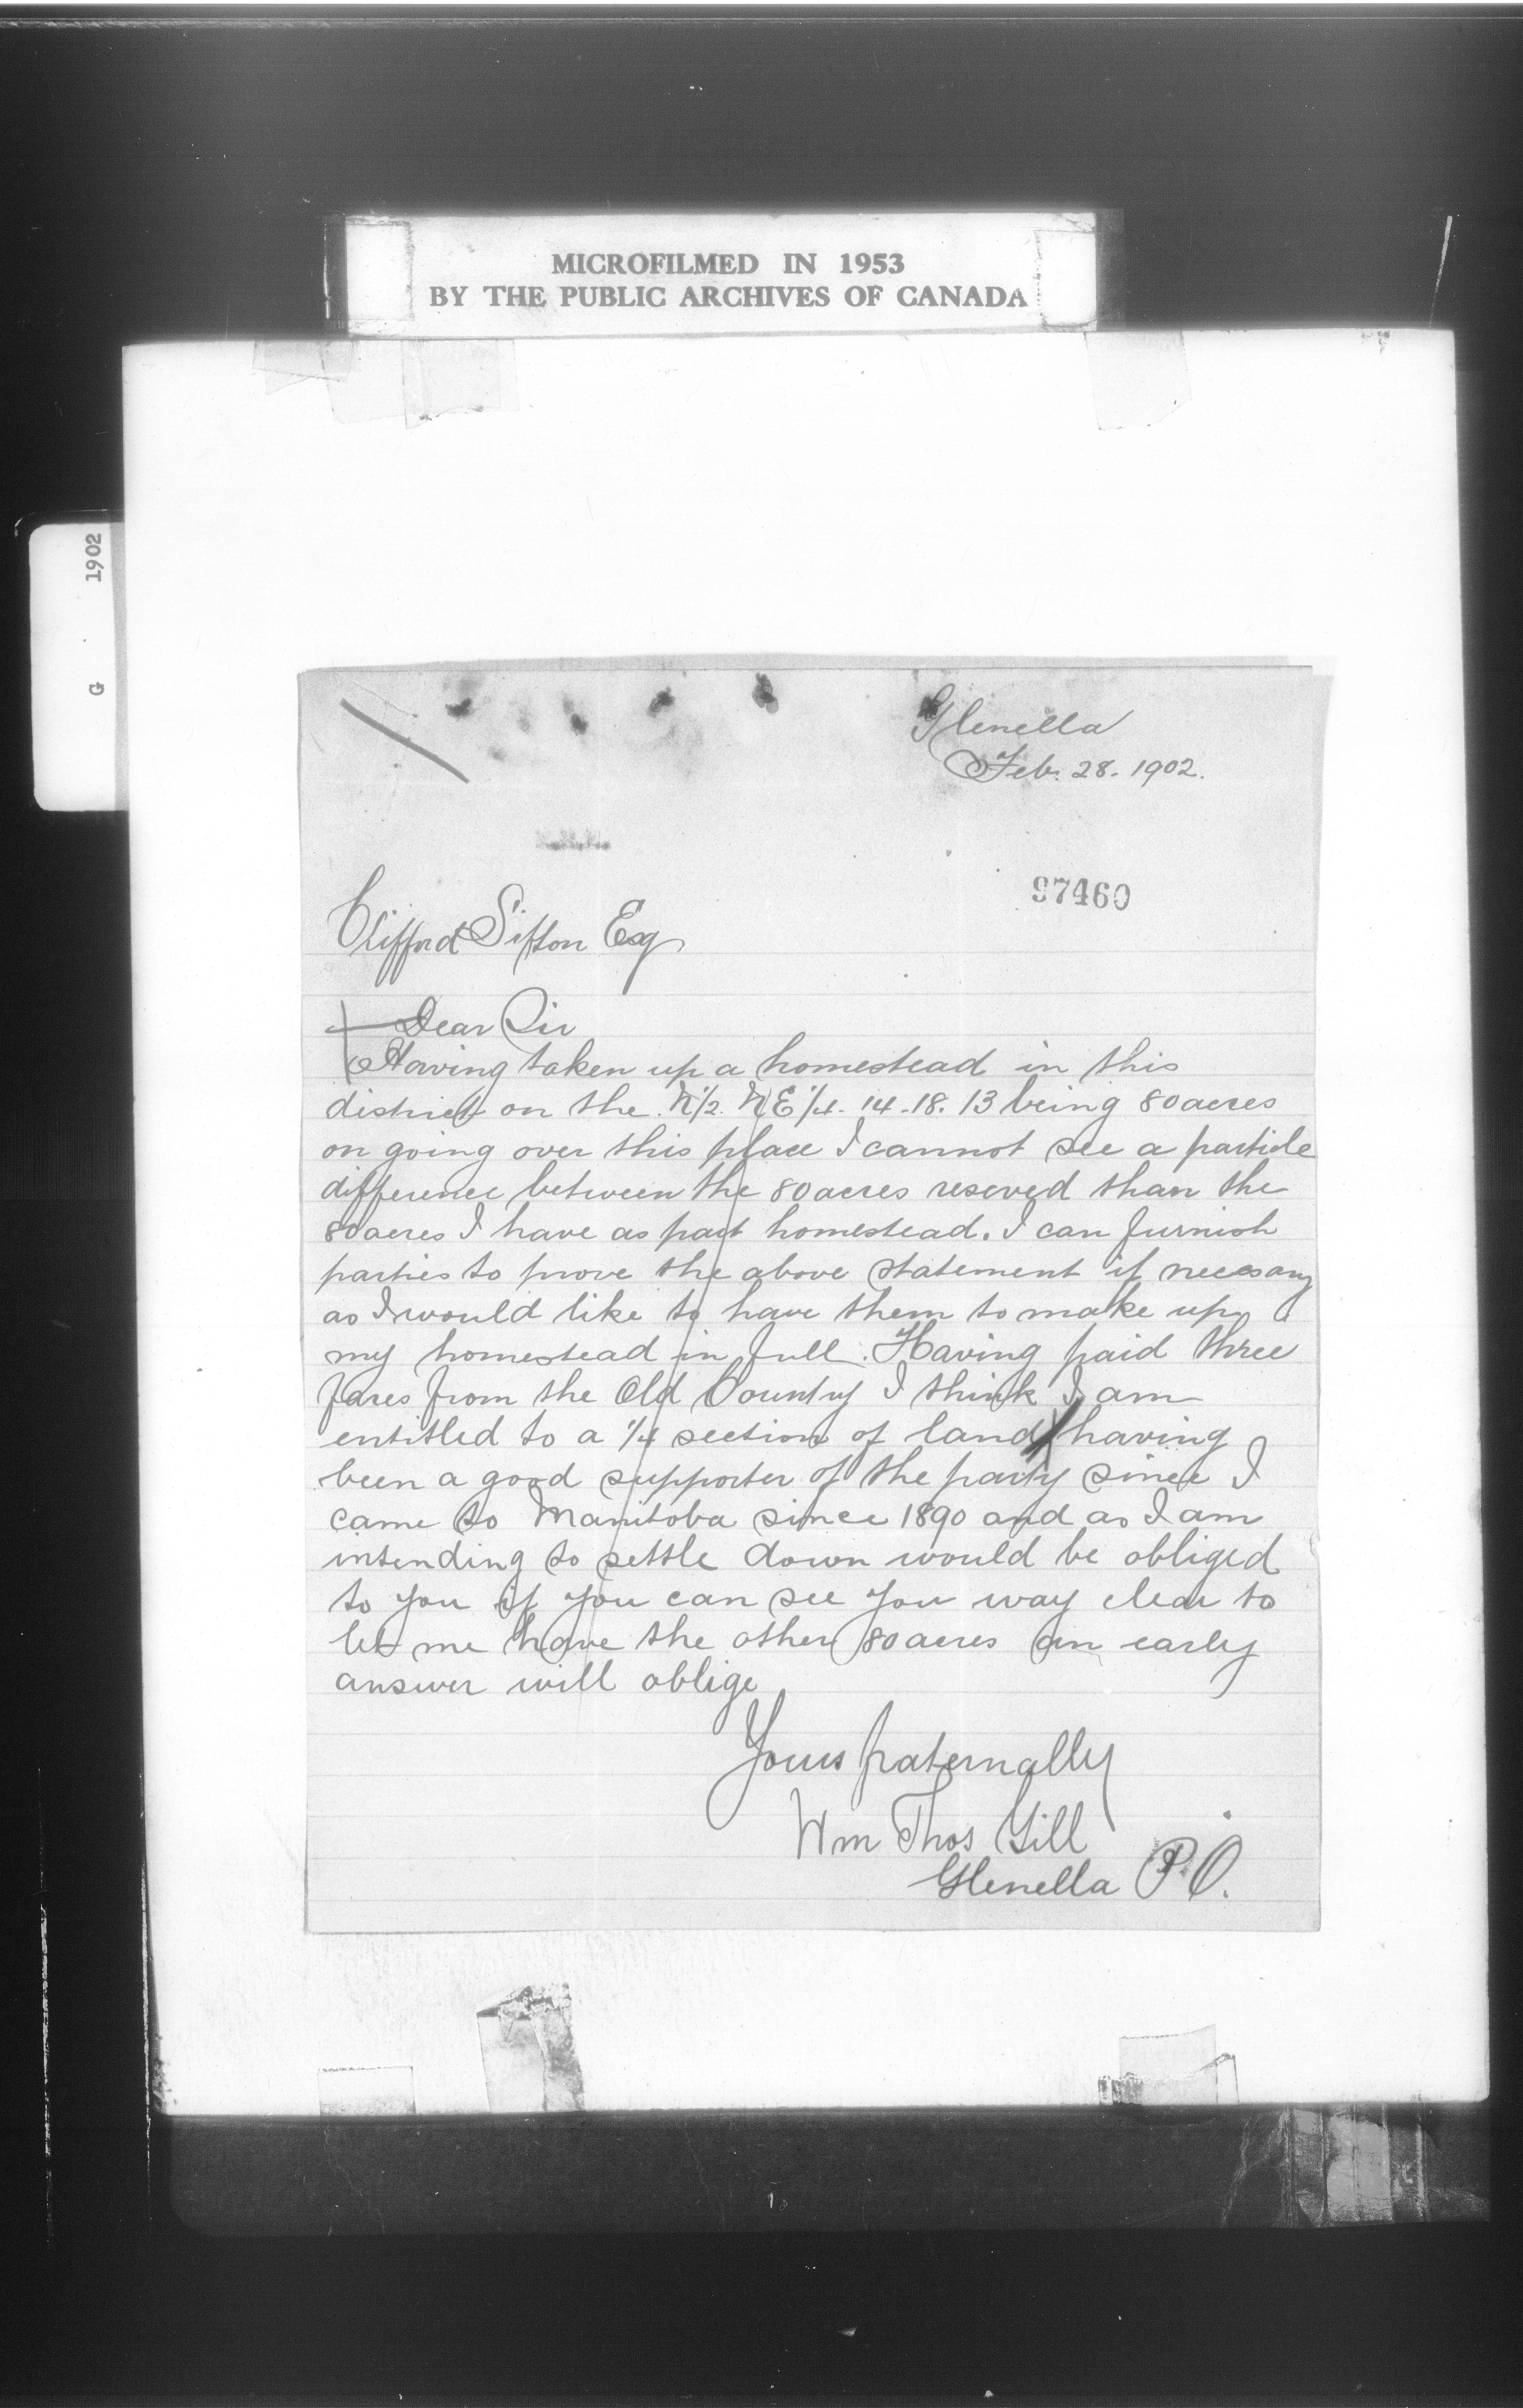 MICROFILMED IN 1953
BY THE PUBLIC ARCHIVES OF CANADA
G 1902
Glenella
Feb. 28. 1902.
97460
Clifford Sifton Esq
Dear Sir
Having taken up a homestead in this
district on the N 1/2. N E 1/4. 14.18.13 being 80 acres
on going over this place I cannot see a particle
difference between the 80 acres reserved than the
80 acres I have as part homestead. I can furnish
parties to prove the above statement if necessary
as I would like to have them to make up
my homestead in full. Having paid three
fares from the Old Country I think I am
entitled to a 1/4 section of land having
been a good supporter of the party since I
came to Manitoba since 1890 and as I am
intending to settle down would be obliged
to you if you can see your way clear to
let me have the other 80 acres an early
answer will oblige
Yours fraternally
Wm Thos Gill
Glenella P.O.